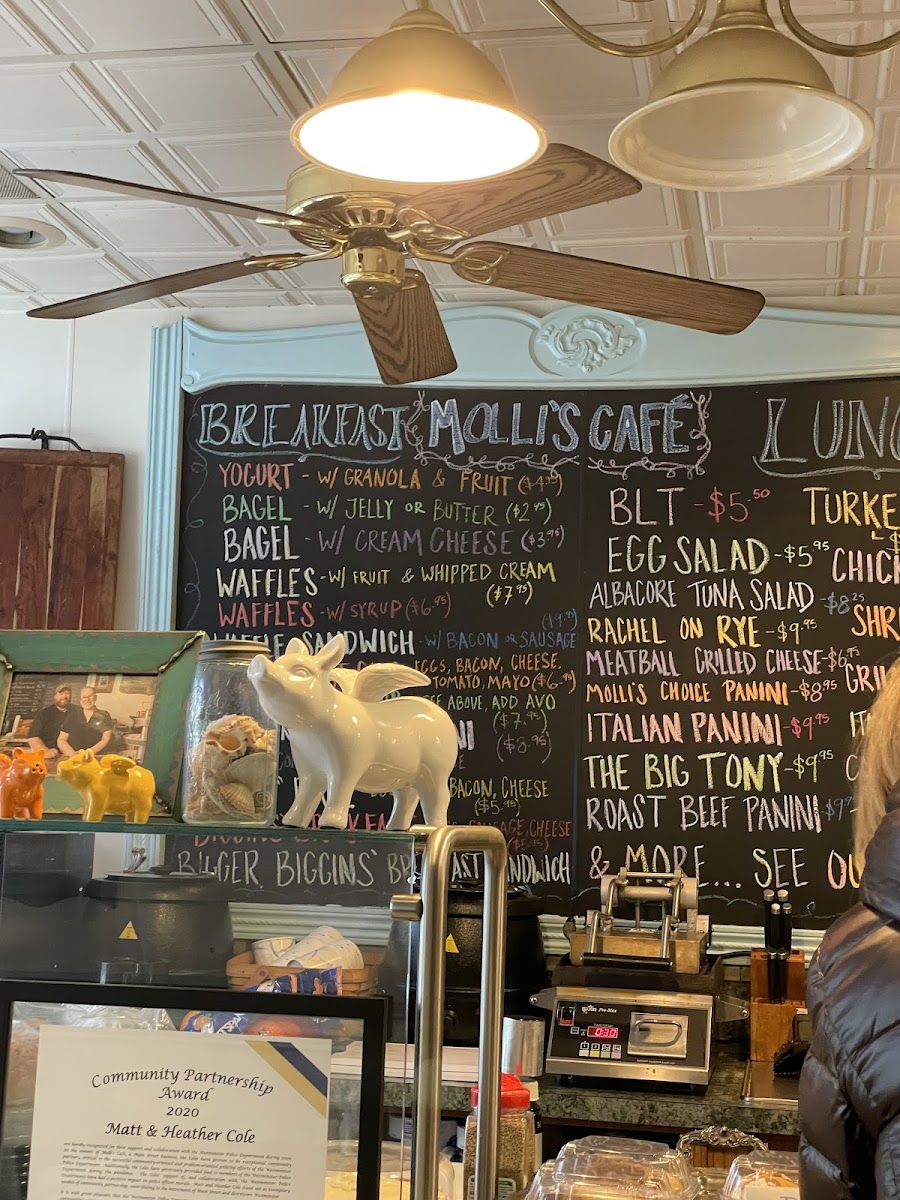 BREAKFAST
MOLLI'S CAFÉ
LUNC
YOGURT - W/ GRANOLA & FRUIT
BAGEL - W/ JELLY OR BUTTER ($2.95)
BAGEL - W/ CREAM CHEESE ($3.95)
WAFFLES - W/ FRUIT & WHIPPED CREAM
($7.95)
WAFFLES - W/ SYRUP ($6.95)
($9.95)
WAFFLE SANDWICH - W/ BACON OR SAUSAGE
EGGS, BACON, CHEESE,
TOMATO, MAYO ($6.95)
ABOVE, ADD AVO
($7.95)
($8.95)
BACON, CHEESE
($5.95)
SAUSAGE, CHEESE
BIGGINS' BREAKFAST SANDWICH
BLT - $5.50
EGG SALAD - $5.95
ALBACORE TUNA SALAD - $8.25
RACHEL ON RYE - $9.95
MEATBALL GRILLED CHEESE - $6.95
MOLLI'S CHOICE PANINI - $8.95
ITALIAN PANINI - $9.95
THE BIG TONY - $9.95
ROAST BEEF PANINI
& MORE... SEE OU
TURKE
CHICK
SHR
GRI
Community Partnership
Award
2020
Matt & Heather Cole
Pro-Max
0:30